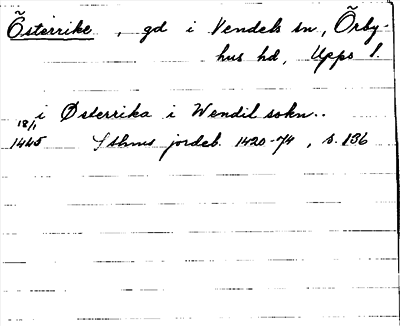 Österrike, gd i Vendels sn, Örby-
hus hd, Upps l.
i Østerrika i Wendil sokn..
18/1
1445 Sthms jordeb. 1420-74, s. 136